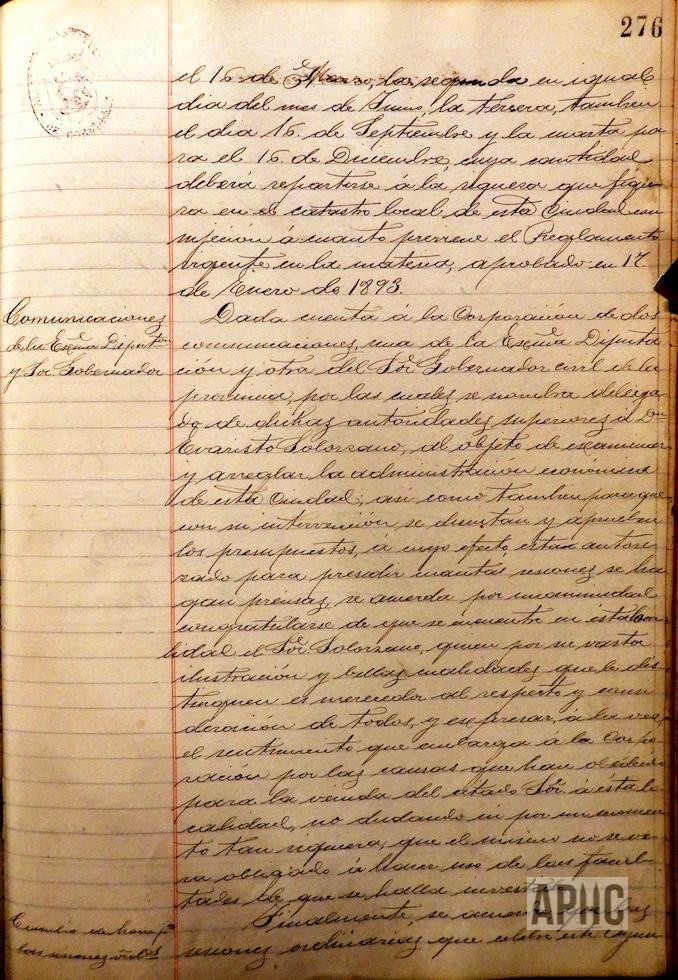 276
el 16 de Marzo, la segunda en igual
dia del mes de Junio, la tercera, tambien
el dia 16 de Septiembre y la cuarta pa
ra el 16 de Diciembre cuya cantidad
deberá repartirse á la riqueza que figu
ra en el catastro local de esta Ciudad con
sujeción á cuanto previene el Reglamento
vigente en la materia, aprobado en 17
de Enero de 1893.
Comunicaciones
de la Excma Diputon
y Sor Gobernador
Dada cuenta á la Corporación de dos
comunicaciones, una de la Excma Diputa
ción y otra del Sor Gobernador civil de la
provincia, por las cuales se nombra delega
do de dichas autoridades superiores á Dn
Evaristo Solorzano, al objeto de examinar
y arreglar la administración económica
de esta Ciudad; asi como tambien para que
con su intervención se discutan y aprueben
los presupuestos, á cuyo efecto, está autori
zado para presidir cuantas sesiones se ha
gan precisas, se acuerda por unanimidad
congratularse de que se encuentre en esta loca
lidad el Sor. Solorzano, quien por su vasta
ilustración y bellas cualidades que le dis
tinguen es merecedor al respecto y consi
deración de todos, y expresar, á la vez,
el sentimiento que embarga á la Corpo
ración por las causas que han obedecido
para la venida del citado Sor. á ésta lo
calidad, no dudando ni por un momen
to tan siquiera, que el mismo no se ve
ra obligado á hacer uso de las facul
tades de que se halla investido.
Cambio de hora pa
las sesiones ordas
Finalmente, se acuerda que las
sesiones ordinarias que celebre este Ayun
APHC